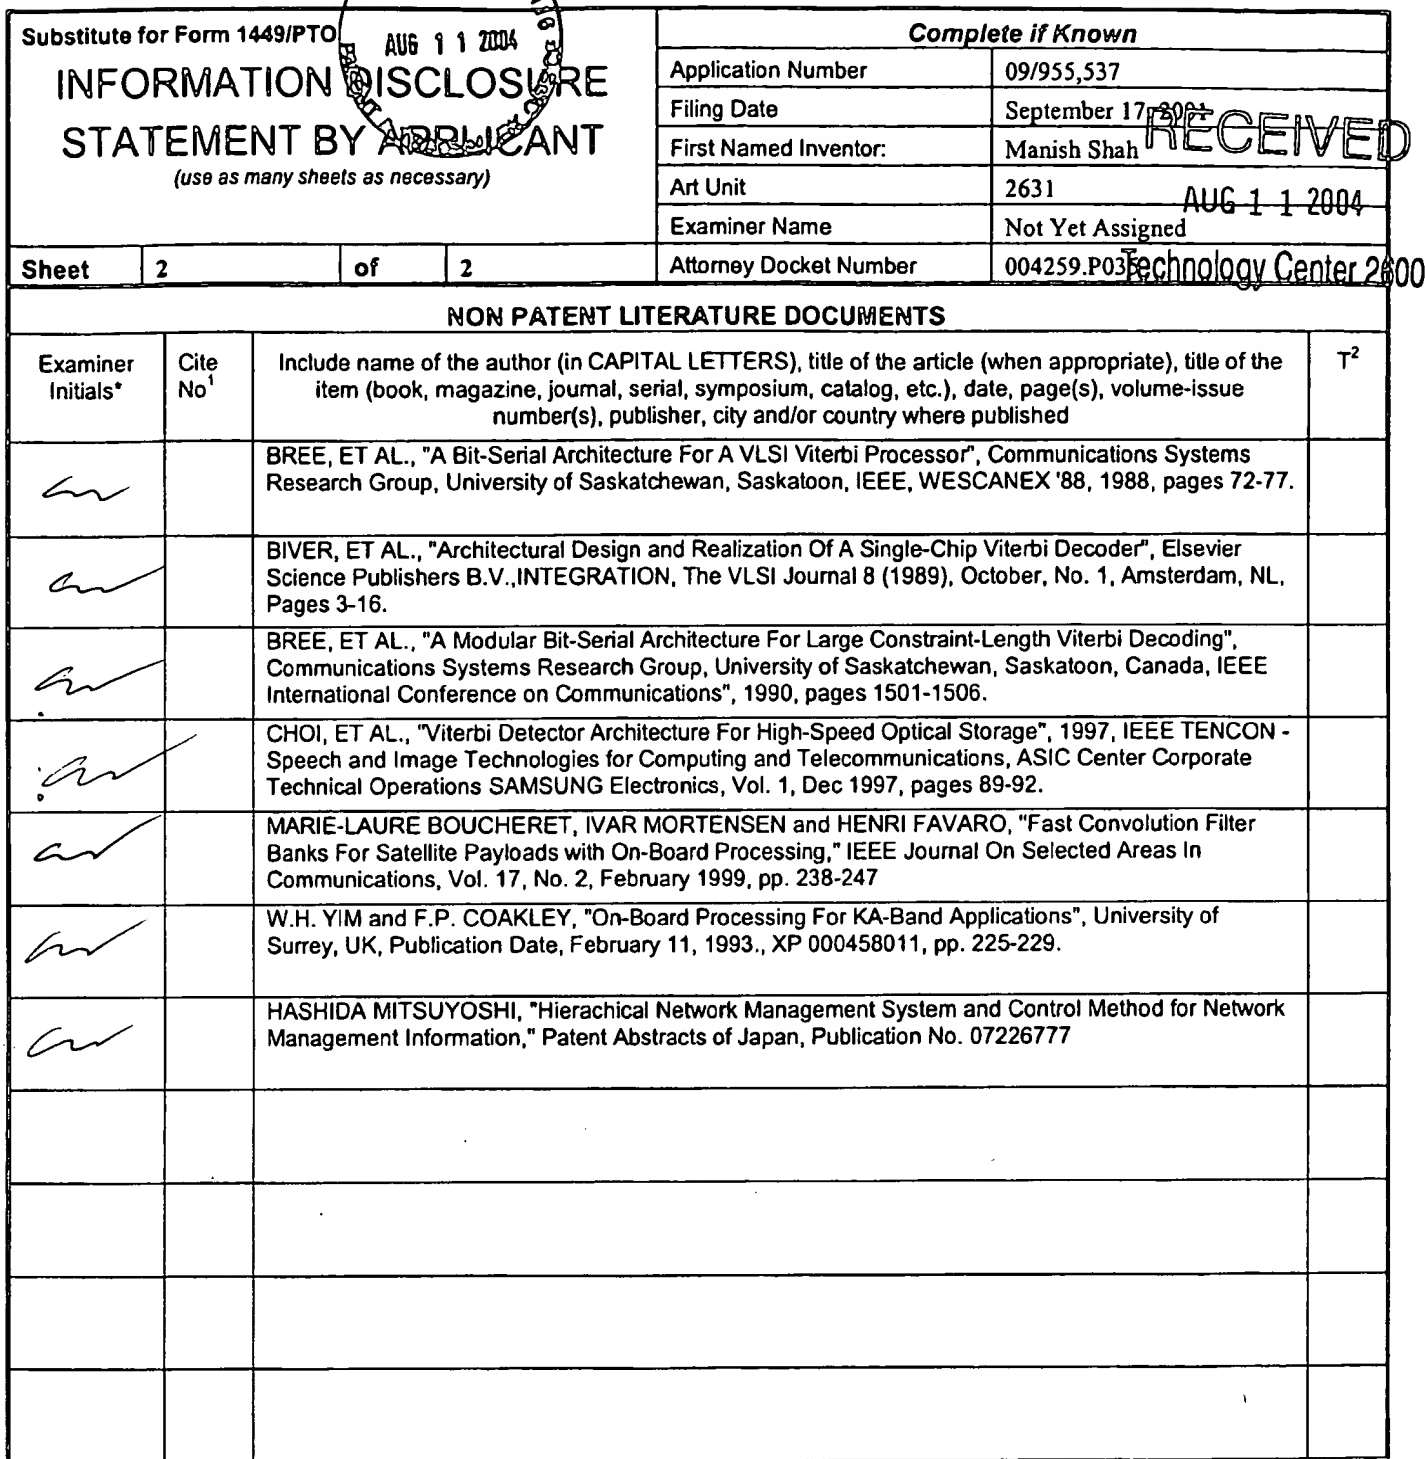 Substitute for Form 1449/PTO
INFORMATION DISCLOSURE
STATEMENT BY APPLICANT
(use as many sheets as necessary)
AUG 1 1 2004
Sheet 2 of 2
Complete if Known
Application Number 09/955,537
Filing Date September 17, 2001
First Named Inventor: Manish Shah
Art Unit 2631
Examiner Name Not Yet Assigned
Attorney Docket Number 004259.P03
RECEIVED
AUG 1 1 2004
Technology Center 2600
NON PATENT LITERATURE DOCUMENTS
Examiner Initials*
Cite No1
Include name of the author (in CAPITAL LETTERS), title of the article (when appropriate), title of the
item (book, magazine, journal, serial, symposium, catalog, etc.), date, page(s), volume-issue
number(s), publisher, city and/or country where published
T2
BREE, ET AL., "A Bit-Serial Architecture For A VLSI Viterbi Processor", Communications Systems
Research Group, University of Saskatchewan, Saskatoon, IEEE, WESCANEX '88, 1988, pages 72-77.
BIVER, ET AL., "Architectural Design and Realization Of A Single-Chip Viterbi Decoder", Elsevier
Science Publishers B.V.,INTEGRATION, The VLSI Journal 8 (1989), October, No. 1, Amsterdam, NL,
Pages 3-16.
BREE, ET AL., "A Modular Bit-Serial Architecture For Large Constraint-Length Viterbi Decoding",
Communications Systems Research Group, University of Saskatchewan, Saskatoon, Canada, IEEE
International Conference on Communications", 1990, pages 1501-1506.
CHOI, ET AL., "Viterbi Detector Architecture For High-Speed Optical Storage", 1997, IEEE TENCON -
Speech and Image Technologies for Computing and Telecommunications, ASIC Center Corporate
Technical Operations SAMSUNG Electronics, Vol. 1, Dec 1997, pages 89-92.
MARIE-LAURE BOUCHERET, IVAR MORTENSEN and HENRI FAVARO, "Fast Convolution Filter
Banks For Satellite Payloads with On-Board Processing," IEEE Journal On Selected Areas In
Communications, Vol. 17, No. 2, February 1999, pp. 238-247
W.H. YIM and F.P. COAKLEY, "On-Board Processing For KA-Band Applications", University of
Surrey, UK, Publication Date, February 11, 1993., XP 000458011, pp. 225-229.
HASHIDA MITSUYOSHI, "Hierachical Network Management System and Control Method for Network
Management Information," Patent Abstracts of Japan, Publication No. 07226777